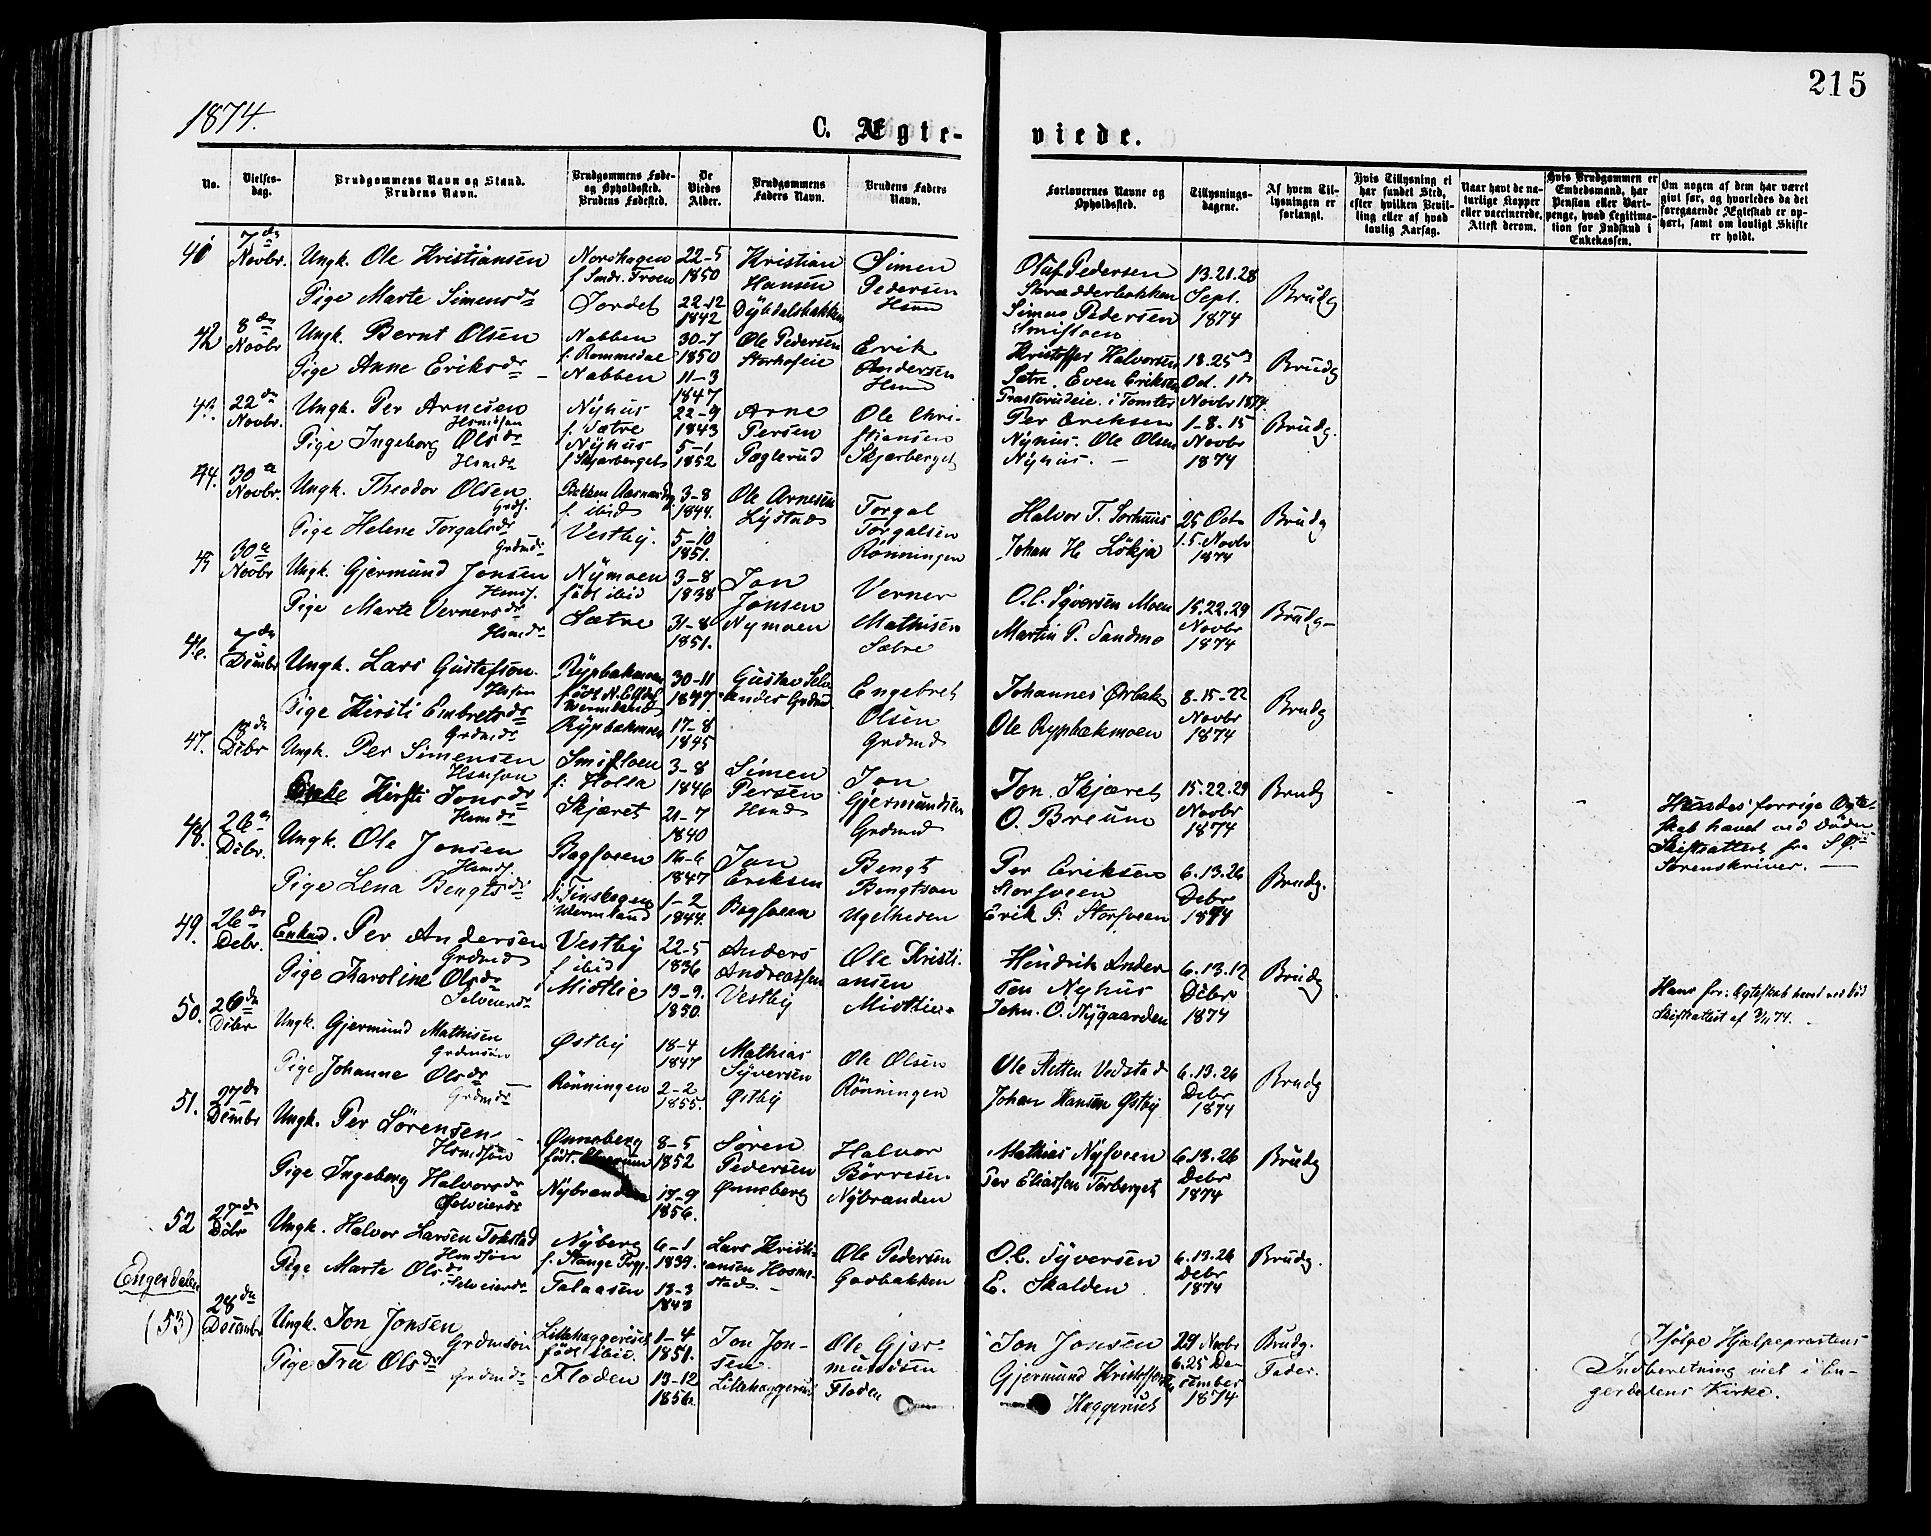 215
1874.
C. Ægte-
viede.
No.
Vielses-
dag.
Brudgommens Navn og Stand.
Brudens Navn.
Brudgommens Føde-
og Opholdssted.
Brudens Fødested.
De
Viedes
Alder.
Brudgommens
Faders Navn.
Brudens Faders
Navn.
Forlovernes Navne og
Opholdssted.
Tillysnings-
dagene.
Af hvem Til-
lysningen er
forlangt.
Hvis Tillysning ei
har fundet Sted,
efter hvilken Bevil-
ling eller af hvad
lovlig Aarsag.
Naar havt de na-
turlige Kopper
eller vaccinerede,
Attest derom.
Hvis Brudgommen er
Embedsmand, har
Pension eller Vart-
penge, hvad Legitima-
tion for Indskud i
Enkekassen.
Om nogen af dem har været
givt før, og hvorledes da det
foregaaende Ægteskab er op-
hørt, samt om lovligt Skifte
er holdt.
41
7de
Novbr.
Ungk. Ole Kristiansen
Pige Marte Simensdr
Nordhagen
Jordet
22-5
1850
22-12
1842
Kristian
Hansen
Dybdalsbakken
Simen
Pedersen
Olaf Pedersen
Skrædderbakken
Simen Pedersen
Smistoen
13.21.28
Sept.
1874
Brudg
42
8de
Novbr
Ungk. Bernt Olsen
Pige Anne Eriksdr
Nabben
f. Rommedal
Nabben
30-7
1850
11-3
1847
Ole Pedersen
Erik
Andersen
Kristoffer Halvorsen
Sætre. Even Eriksen
18.25
Oct. 1
Novbr 1874.
Brudg
43.
22de
Novbr.
Ungk. Per Arnesen
Hsmdsøn
Pige Ingeborg Olsdr
Hsmdt
Nyhus
f. Sætre
Nyhus
f Skjærberget
22-9
1843
5-1
1852
Arne
Persen
Paglerud
Ole Chri-
stiansen
Skjærberget
Per Eriksen
Nyhus. Ole Olsen
Nyhus.
1-8-15
Novbr
1874
Brudg.
44.
30te
Novbr.
Ungk. Theodor Olsen
Pige Helene Torgalsdr
f. ibid
Vestby.
3-8
1844.
5-10
1851.
Ole Arnesen
Lystad
Torgal
Torgalsen
Rønningen
Halvor T. Sorhuus
Johan H. Løkja
25 Oct
1.5. Novbr
1874
Brudg
45
30te
Novbr
Ungk. Gjermund Jonsen
Hsmds.
Pige Marte Vernersdr
Hsmdr
Nymoen
født ibid
Sætre
3-8
1838
31-8
1851.
Jon
Jonsen
Nymoen
Verner
Mathisen
Sætre
O. C. Syversen Moen
Martin P. Sandmo
15.22.29
Novbr
1874
Brudg
46.
7de
Dcmbr
Ungk. Lars Gustafson
Pige Kirsti Embretsdr
Grdmdt
Rypbakmoen
Wermland
Rypbakmoen
30-11
1847
17-8
1845
Gustav
Engebret
Olsen
Grdmd
Johannes Ørbak
Ole Rypbakmoen
8-15-22
Novbr
1874
Brudg
47.
18de
Dcbr
Ungk. Per Simensen
Hsmdson
Enke Kirsti Jonsdr
Hsmdr
Smistoen
f. Holla
Skjæret
3-8
1846
21-7
1840
Simen
Persen
Hsmd
Jon
Gjermundsen
Grdmd
Jon Skjæret
O. Breum
15.22.29
Novbr
1874
Brudg
Hendes forrige Ægte-
skab hævet ved Døden
Skifteattest fra
Sorenskriver.
48.
26de
Dcbr.
Ungk. Ole Jonsen
Hsmds.
Pige Lena Bengtsdr
Bagsveen
Wermland
16-6
1847
1-2
1844.
Jon
Eriksen
Bagsveen
Bengt
Bengtson
Ugelheden
Per Eriksen
Storsveen
Erik P. Storsveen
6.13.26
Debr
1874
Brudg.
49.
26de
Debr.
Enkmd. Per Andersen
Grdmd
Pige Karoline Olsdr
Selveierdr
Vestby
f ibid
Mistlie
22-5
1836
13-9.
1850.
Anders
Andreassen
Vestby
Ole Kristi-
ansen
Mistlien
Hendrik Ander
sen Nyhus
John. O. Nygaarden
6.13.12
Debr
1874
Brudg
Hans for: Ægteskab hævet ved Død
Skifteattest af
50.
26de
Dcbr
Ungk. Gjermund Mathisen
Grdmsøn
Pige Johanne Olsdr
Grdmdr
Østby
Rønningen
18-4
1847
2-2
1855.
Mathias
Syversen
Østby
Ole Olsen
Rønningen
Ole Netten Vedstad
Johan Hansen Østby
6.13.26
Debr
1874
Brudg
51.
27de
Dcmbr
Ungk. Per Sørensen
Hsmdsøn
Pige Ingeborg Halvorsdr
Selveierdr
Ønneberg
født. Elverum
Nybranden
8-5
1852
17-9
1856.
Søren
Pedersen
Ønneberg
Halvor
Børresen
Nybranden
Mathias Nysveen
Per Eliassen Torberget
6.13.26
Debr
1874
Brudg
52
27de
Dcbr
Ungk. Halvor Larsen Tokstad
Hsmdsøn
Pige Marte Olsdr
Selveierdr
Nyberg
f. Stange Prgj.
Talaasen
6-1
1839.
13-3
1843
Lars Kristi-
ansen Hosme-
stad.
Ole Pedersen
Garbakken
O. C. Syversen
E. Skalden
6.13.26
Debr
1874
Brudg.
Engerdalen
(53)
28de
Decembr
Ungk. Jon Jonsen
Grdmsøn
Pige Tru Olsdr
Grdmdr
Lillehaggeriset
født ibid.
Floden
1-4
1851.
13-12
1856.
Jon Jon-
sen
Ole Gjer-
mundsen
Floden
Jon Jonsen
Gjermund Kristoffersen
Haggeriset
29 Novbr
6.25 De-
cember
1874
Brudg.
Fader.
Ifølge Hjælpeprestens
Indberetning viet i En-
gerdalens Kirke.